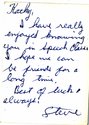 Rocky,
I have really
enjoyed knowing
you in speech class
I hope we can
be friends for a
long time.
Best of luck
always!
Steve